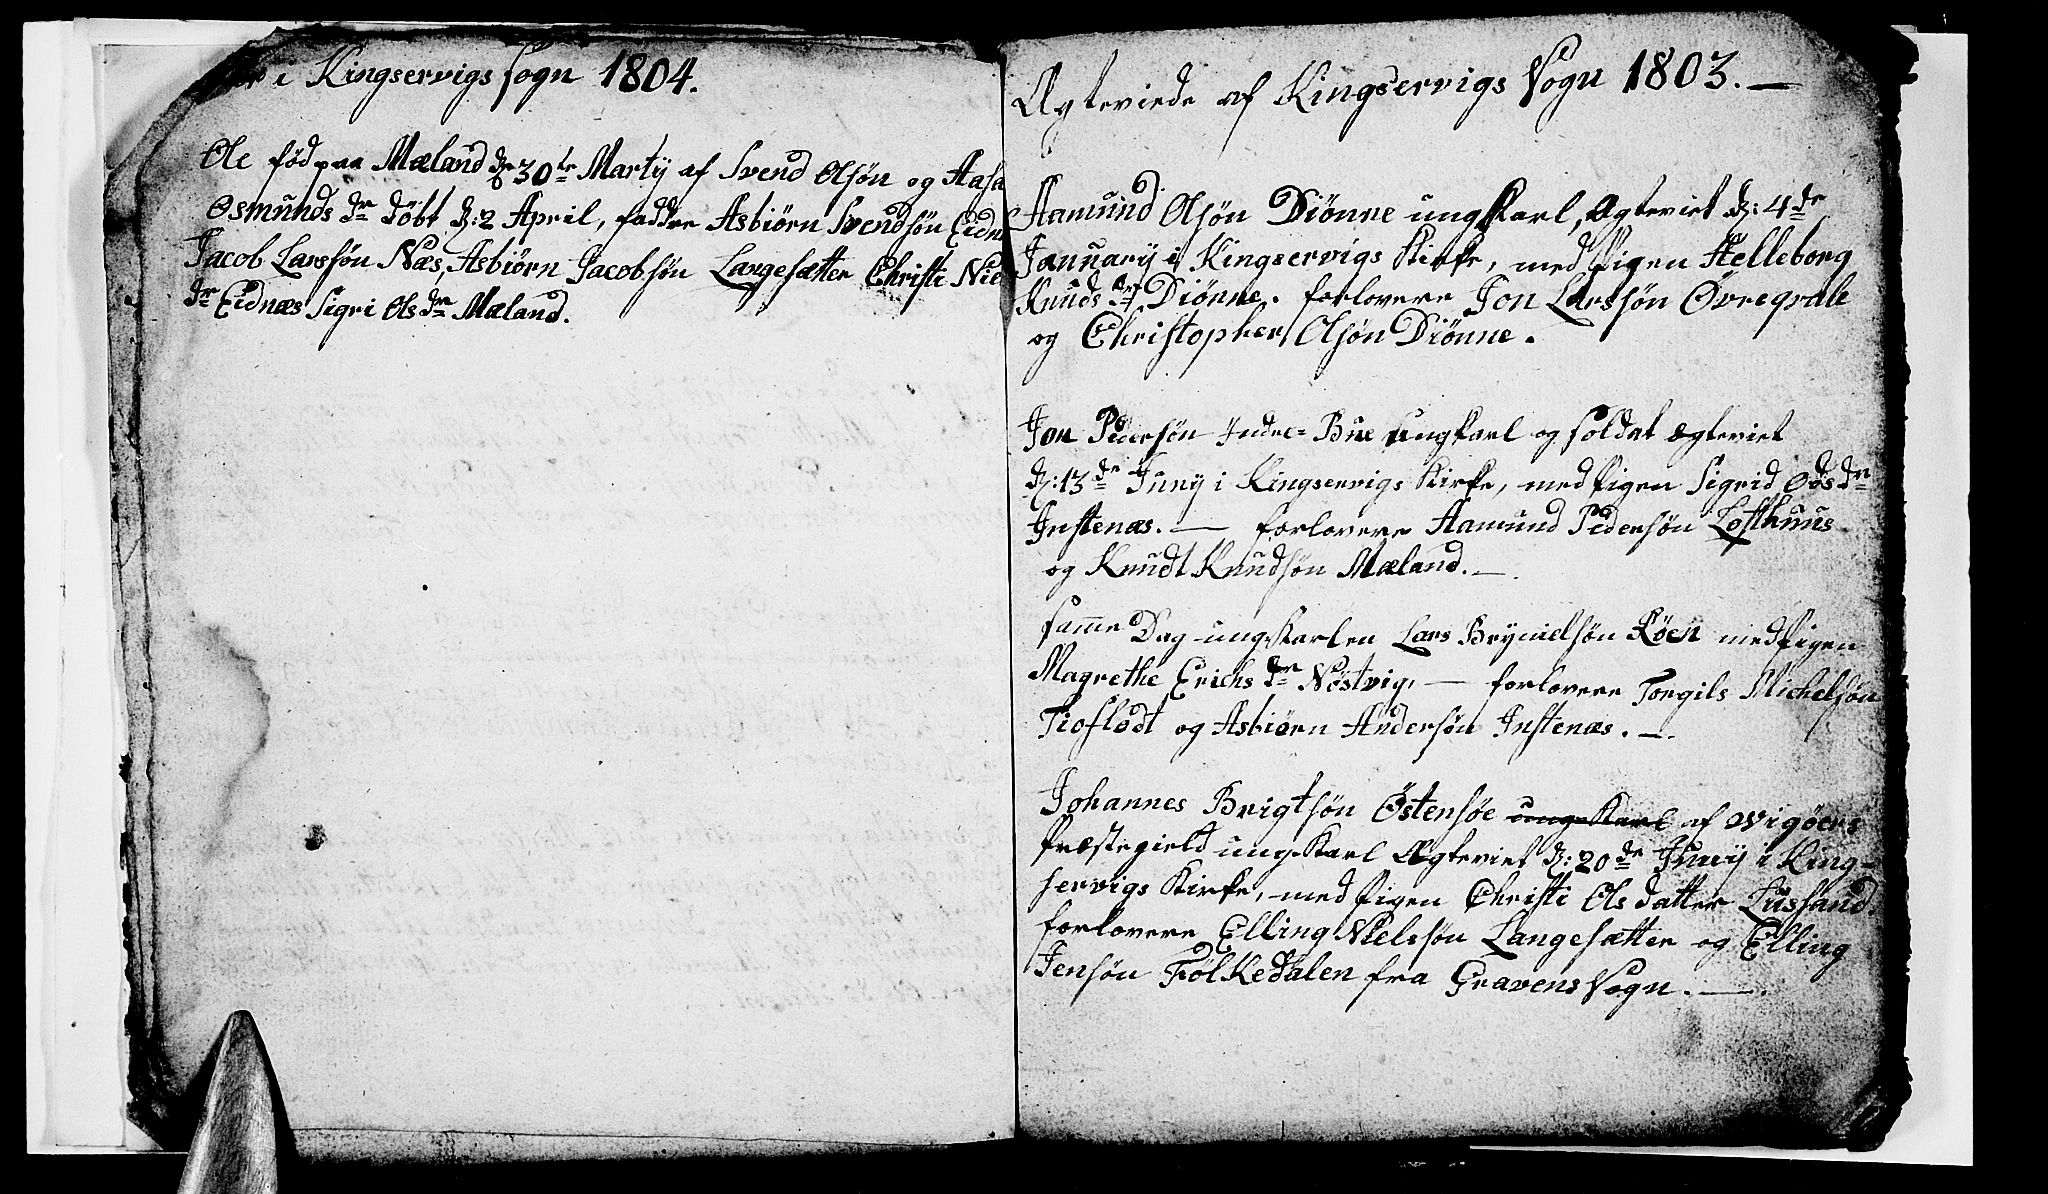 i Kingservigs Sogn 1804.
Ole född paa Mæland d: 30te Martÿ af Svend Olsøn og Aasa
Osmunds dr døbt d: 2 April, faddre Asbiørn Svendsøn Eidn
Jacob Larssøn Næs, Asbiørn Jacobsøn Langesætter Christi Nie
dr Eidnæs Sigri Ols dr Mæland.
Ægteviede af Kingservigs Sogn 1803. —
Aamund Olsøn Diønne ungkarl, Ægteviet d: 4de
January i Kingservigs Kirke, med Pigen Helleborg
Knuds dr Diønne. forlovere Jon Larssøn Øvreqvale
og Christopher Olsøn Diønne.
Jon Pedersøn Indre= Bue ungkarl og Soldat ægteviet
d: 13de Juny i Kingservigs Kirke, med Pigen Sigrid Ods dr
Instenæs. — forlovere Aamund Pedersøn Lofthuus
og Knudt Knudsøn Mæland. —
Samme Dag ungkarlen Lars Brynielsøn Røen med Pigen
Magrethe Erichs dr Nøstvig, — forlovere Torgils Michelsøn
Tioflodt og Asbiørn Andersøn Instenæs. —
Johannes Brigtsøn Östensøe ungkarl af Vigöers
Præstegield ungkarl Ægteviet d: 20de Juny i King-
servigs Kirke, med Pigen Christi Olsdatter Lussand.
forlovere Elling Nielssøn Langesætter og Elling
Jensøn Folkedalen fra Gravens Sogn. —